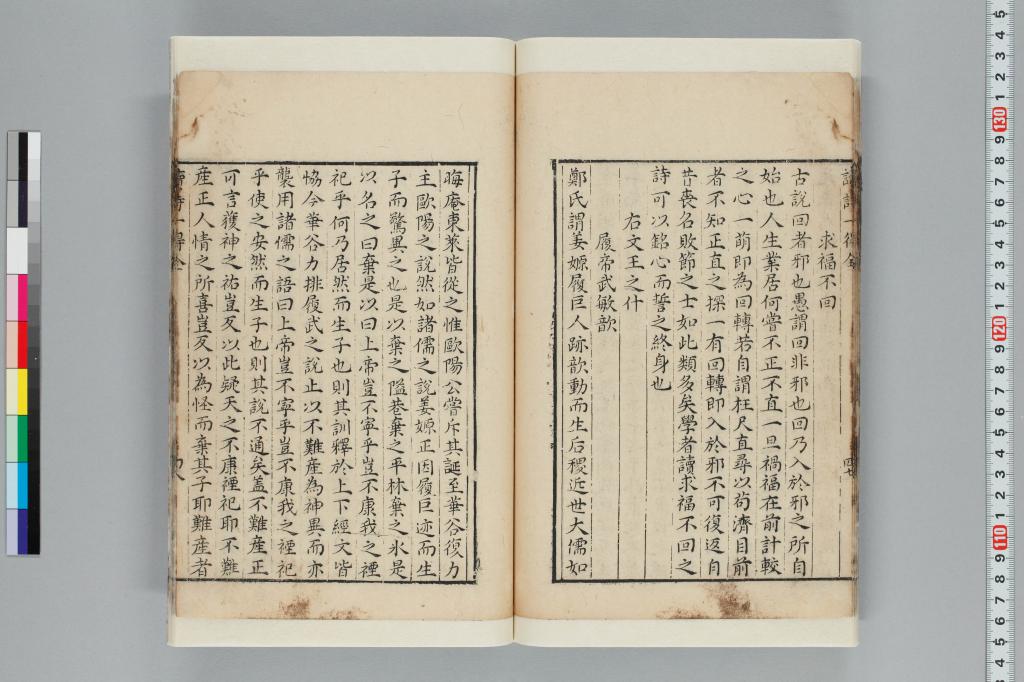 求福不回
古說回者邪也愚謂回非邪也回乃入於邪之所自
始也人生業居何嘗不正不直一旦禍福在前計較
之心一萌即為回轉若自謂枉尺直尋以茍濟目前
者不知正直之操一有回轉即入於邪不可復返自
昔喪名敗節之士如此類多矣學者讀求福不回之
詩可以銘心而誓之終身也
右文王之什
履帝武敏歆
鄭氏謂姜嫄履巨人跡歆動而生后稷近世大儒如
晦庵東萊皆從之惟歐陽公嘗斥其誕至華谷復力
主歐陽之說然如諸儒之說姜嫄正因履巨迹而生
子而驚異之也是以棄之隘巷棄之平林棄之氷是
以名之曰棄是以曰上帝豈不寧乎豈不康我之禋
祀乎何乃居然而生子也則其訓釋於上下經文皆
恊今華谷力排履武之說止以不難產為神異而亦
襲用諸儒之語曰上帝豈不寧乎豈不康我之禋祀
乎使之安然而生子也則其說不通矣盖不難產正
可言獲神之祐豈反以此疑天之不康禋祀耶不難
產正人情之所喜豈反以為怪而棄其子耶難產者